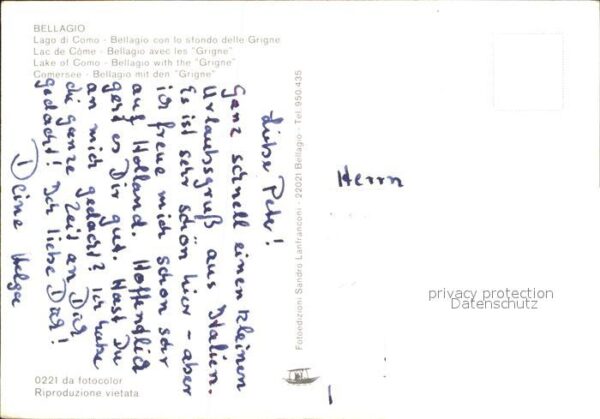 BELLAGIO
Lago di Como - Bellagio con lo sfondo delle Grigne
Lac de Côme - Bellagio avec les "Grigne"
Lake of Como - Bellagio with the "Grigne"
Comersee - Bellagio mit den "Grigne"
Liebe Peter!
Ganz schnell einen kleinen
Urlaubsgruß aus Italien.
Es ist sehr schön hier - aber
ich freue mich schon sehr
auf Holland. Hoffentlich
geht es Dir gut. Hast Du
an mich gedacht? Ich habe
die ganze Zeit an Dich
gedacht! Ich liebe Dich!
Deine Helga
Fotoedizioni Sandro Lanfranconi - 22021 Bellagio - Tel. 950.435
Herrn
privacy protection
Datenschutz
0221 da fotocolor
Riproduzione vietata